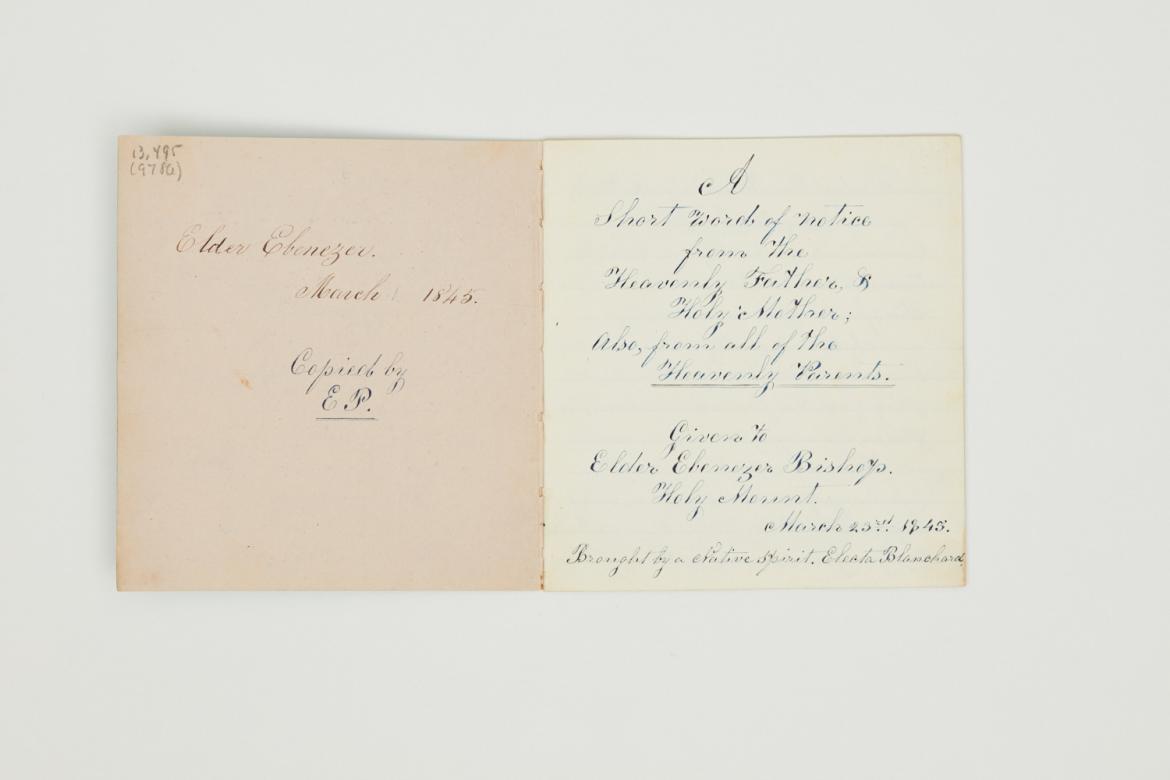 13,495
(9786)
Elder Ebenezer.
March 1845.
Copied by
E P.
A
Short Word of notice
from the
Heavenly Father, &
Holy Mother;
Also, from all of the
Heavenly Parents.
Given to
Elder Ebenezer Bishop.
Holy Mount.
March 23rd. 1845.
Brought by a Native spirit. Electa Blanchard.